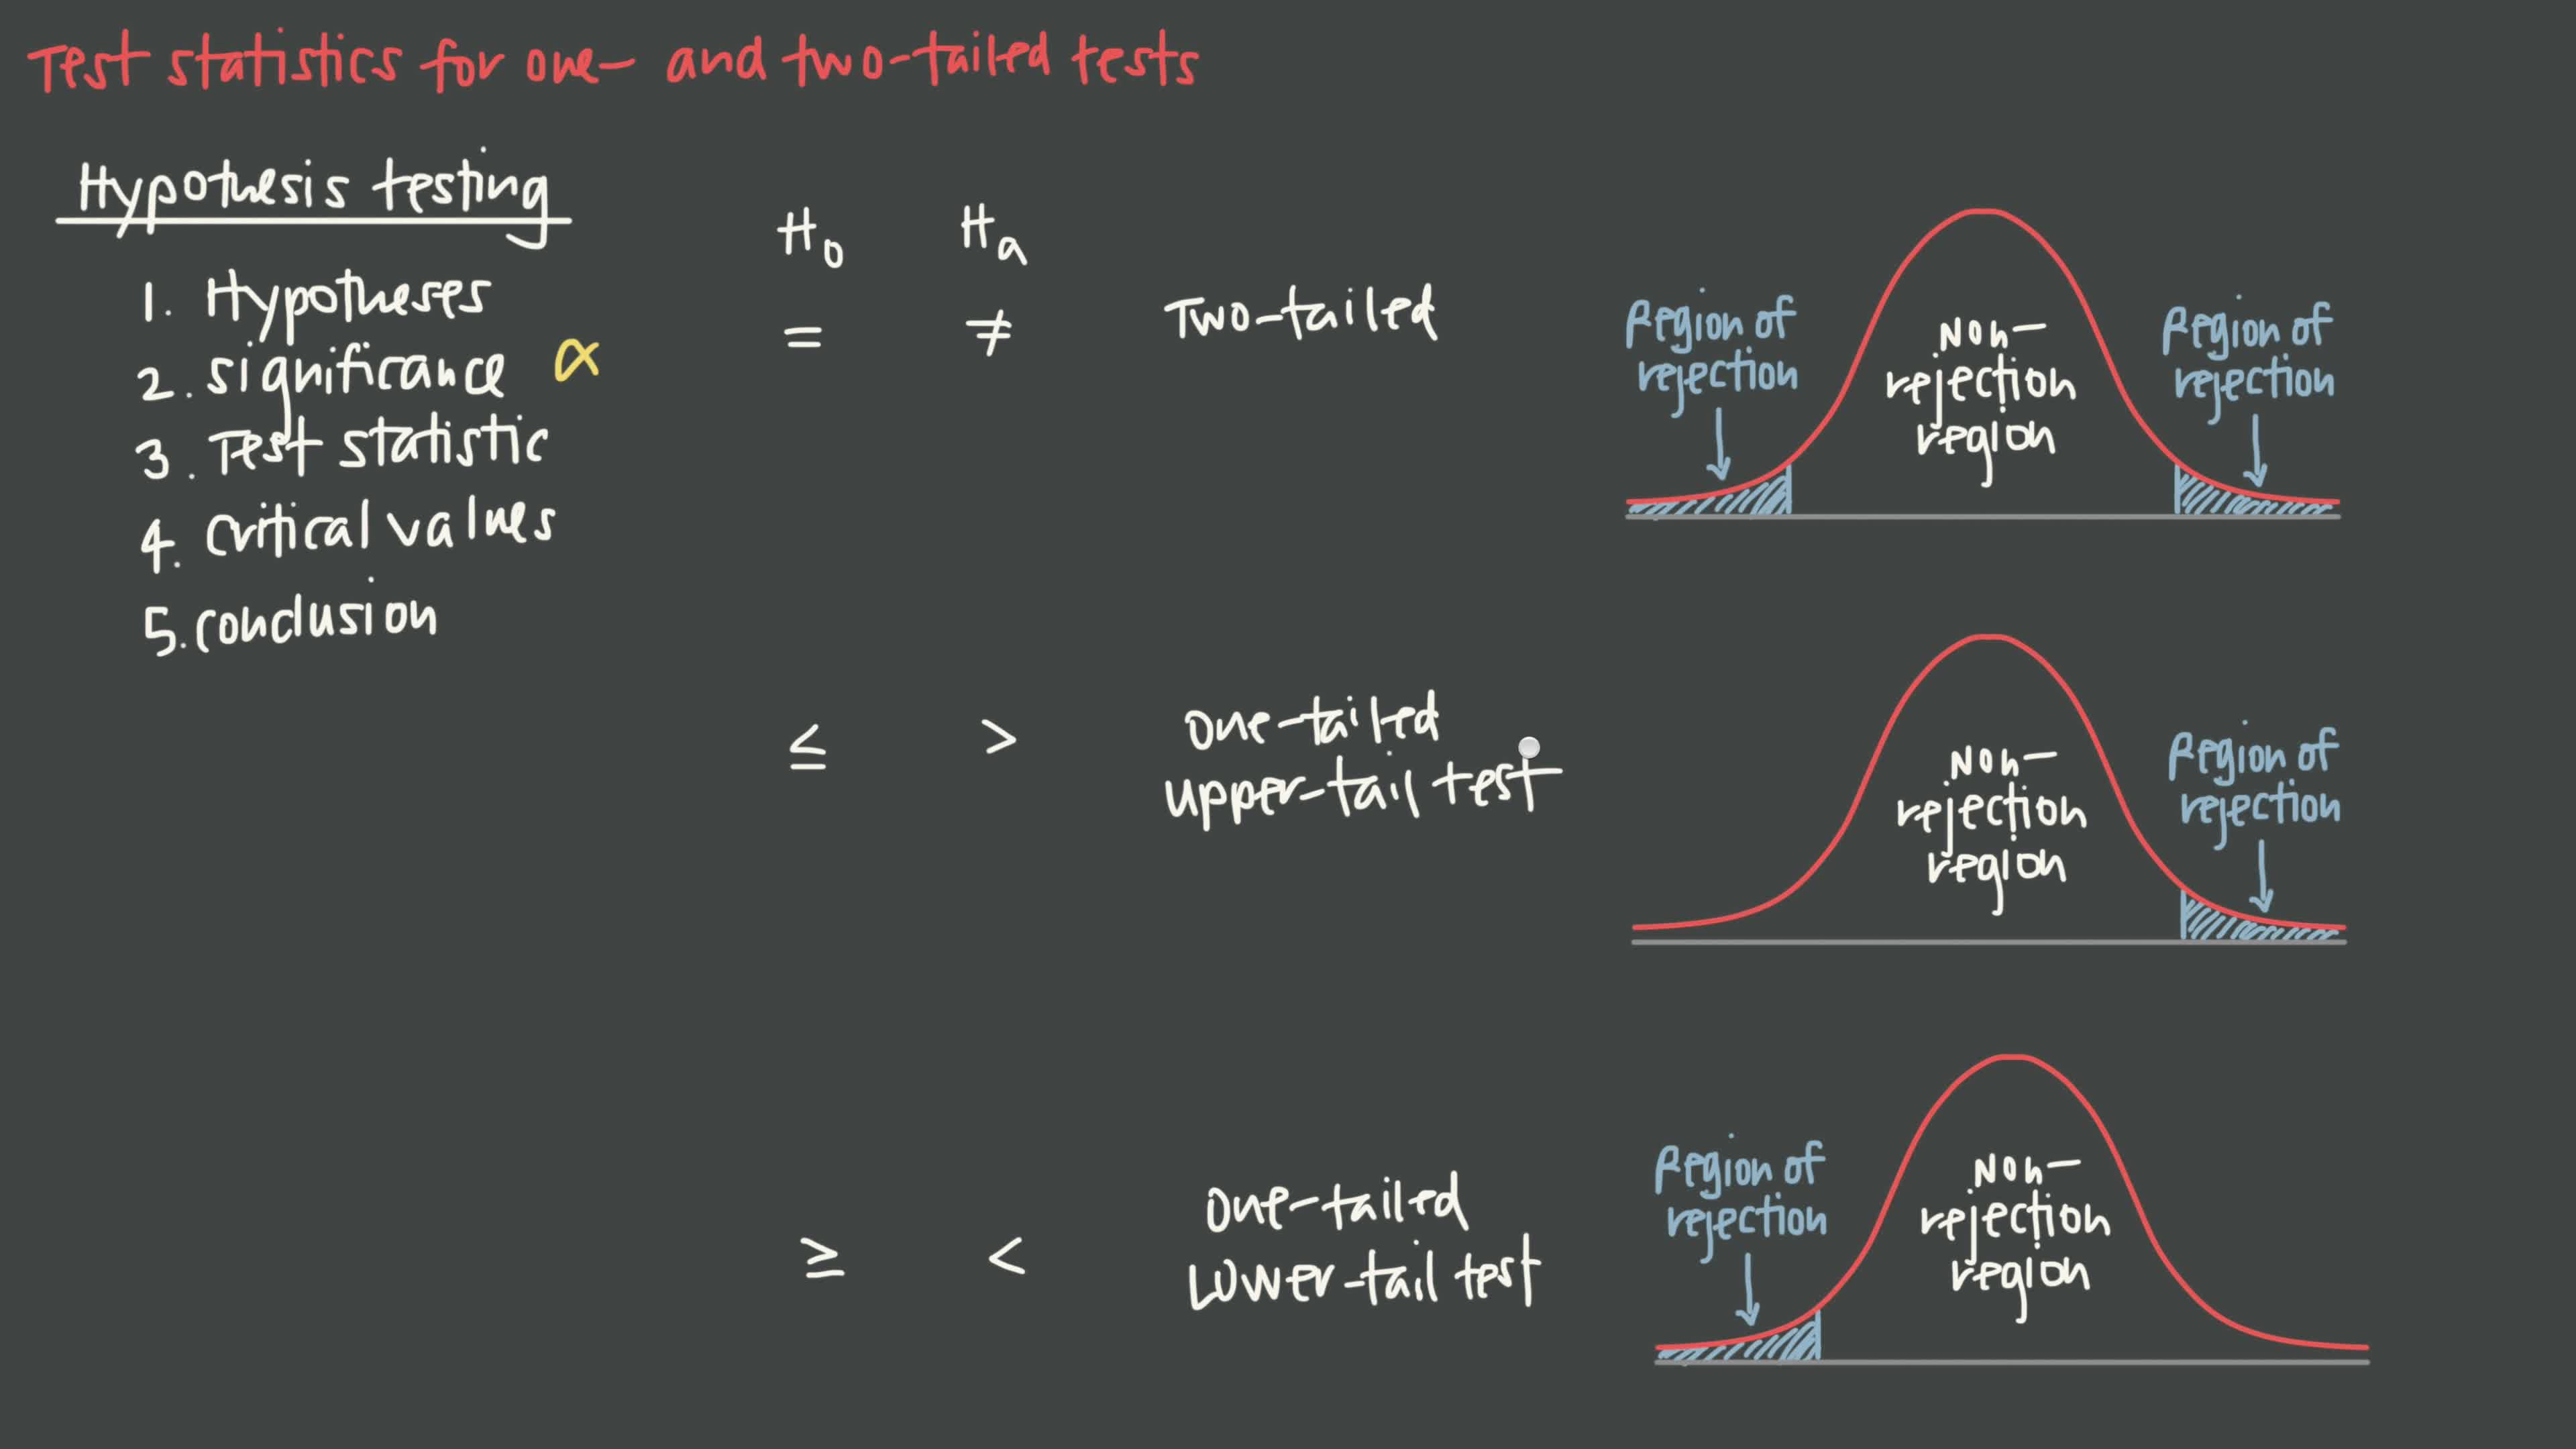 Test statistics for one- and two-tailed tests
Hypothesis testing
1. Hypotheses
2. significance α
3. Test statistic
4. critical values
5. conclusion
H₀ Hₐ
= ≠ Two-tailed
Region of
rejection
Non-
rejection
region
Region of
rejection
≤ > one-tailed
upper-tail test
Non-
rejection
region
Region of
rejection
≥ < one-tailed
Lower-tail test
Region of
rejection
Non-
rejection
region